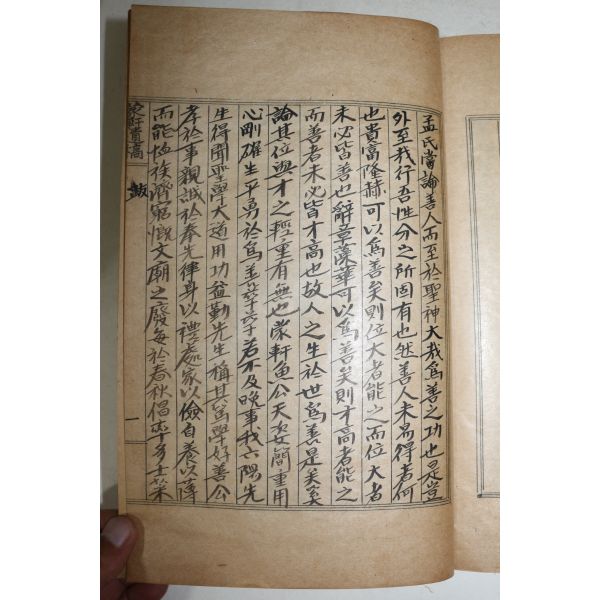 孟氏甞論善人而至於聖神大哉爲善之功也是豈
外至我行吾性分之所固有也然善人未易得者何
也貴富隆赫可以爲善矣則位大者能之而位大者
未必皆善也辭章藻華可以爲善矣則才高者能之
而善者未必皆才高也故人之生於世爲善是矣奚
論其位與才之輕重有無也蒙軒魚公天姿簡重用
心剛確生平勇於爲善孶孶若不及晚事我六隅先
生得聞聖學大道用功益勤先生稱其篤學好善公
孝於事親誠於奉先律身以禮處家以儉自養以薄
而能恤族濟窮慨文廟之廢每於春秋倡率多士菜
蒙軒實稿 跋 一